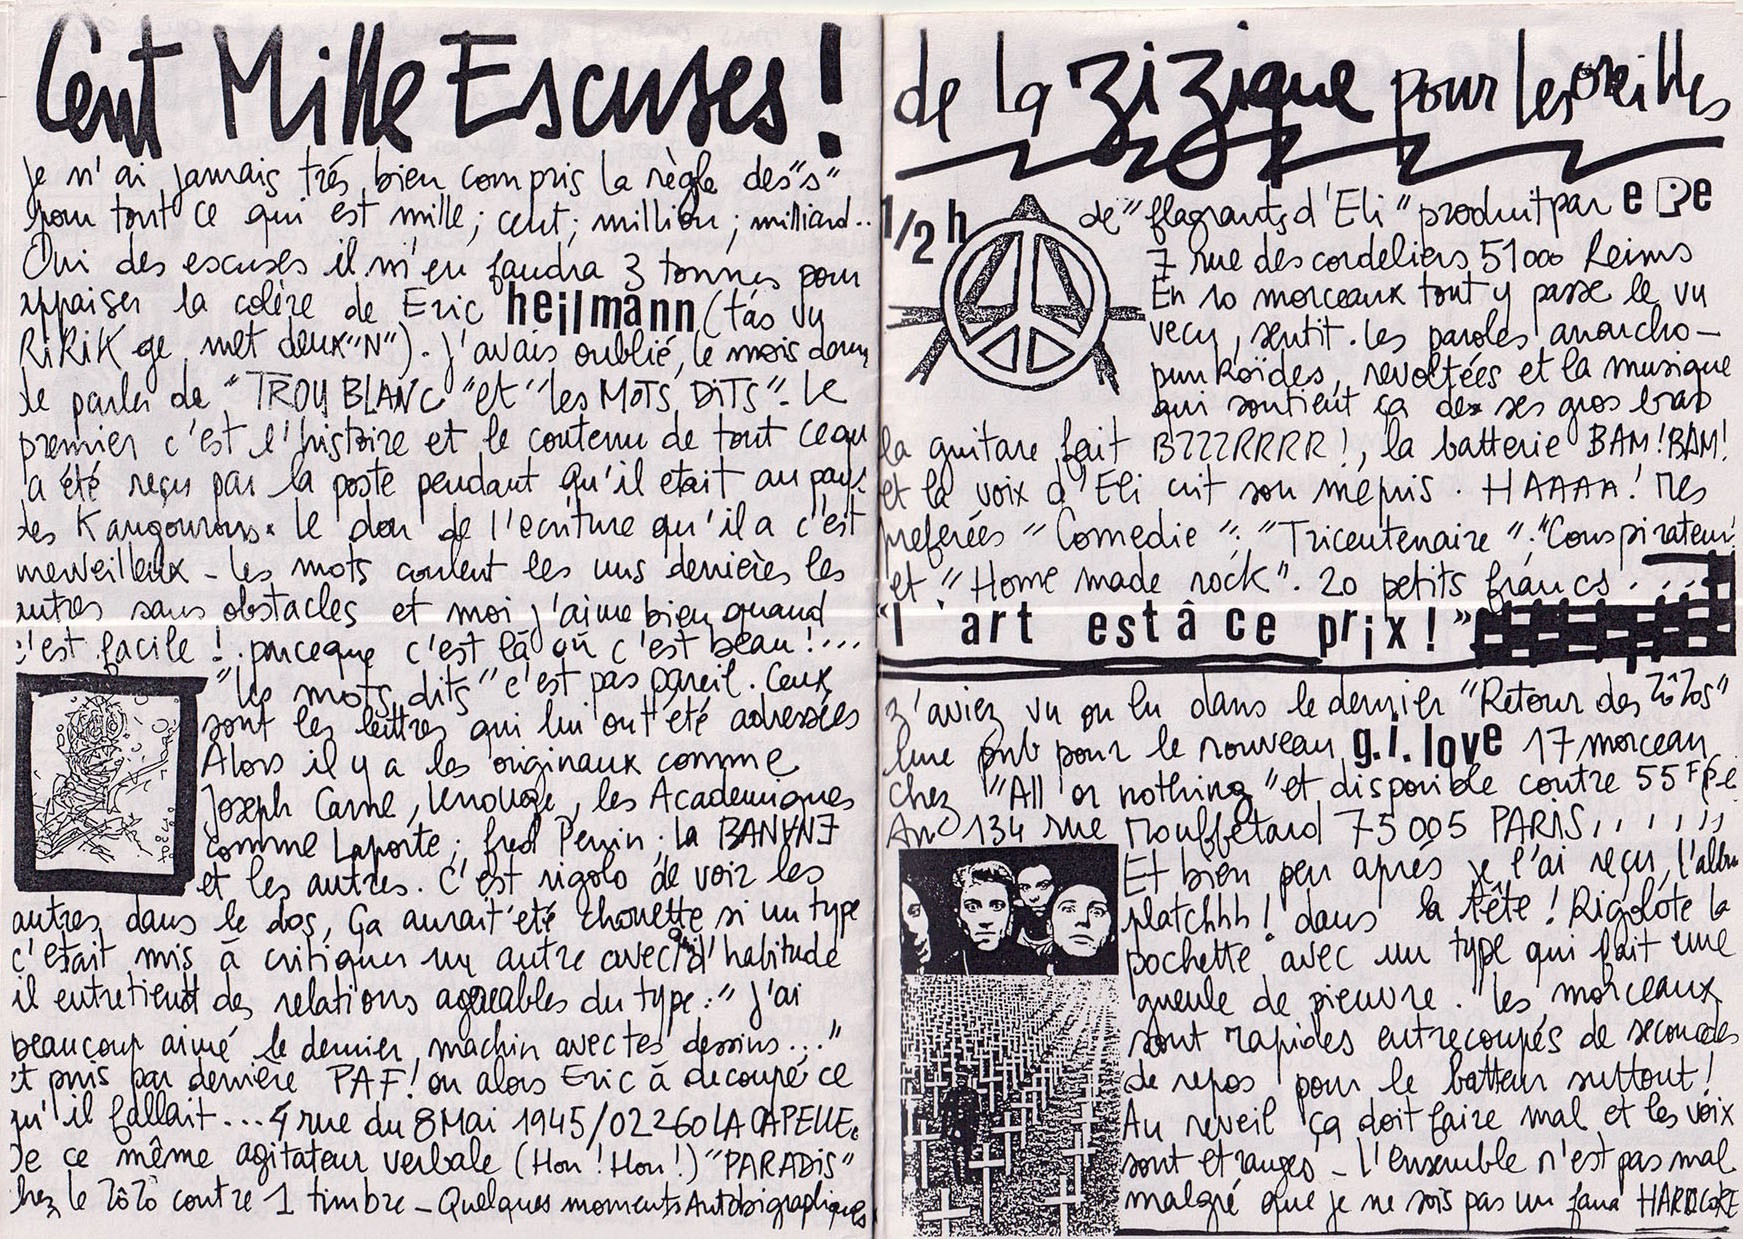 Cent Mille Escuses !
Je n'ai jamais trés bien compris la règle des "s"
pour tout ce qui est mille ; cent ; million ; milliard..
Oui des escuses il m'en faudra 3 tonnes pour
appaiser la colère de Eric heilmann (t'as vu
RiRiK ge met deux "N"). J'avais oublié, le mois
de parler de "TROU BLANC" et "les MOTS DiTS". Le
premier c'est l'histoire et le contenu de tout ce qu
a été reçu par la poste pendant qu'il etait au pays
des Kangourous. Le don de l'ecriture qu'il a c'est
merveilleux - les mots coulent les uns derrières les
autres sans obstacles et moi j'aime bien quand
c'est facile ! parceque c'est là où c'est beau !...
"Les mots dits" c'est pas pareil. Ceux
sont les lettres qui lui ont été adressées
Alors il y a les originaux comme
Joseph Carne, , les Academiques
comme Laporte ; fred Penin ; la BANANE
et les autres. C'est rigolo de voir les
autres dans le dos, Ça aurait été chouette si un type
c'etait mis à critiquer un autre avec qui d'habitude
il entretient des relations agréables du type : "J'ai
beaucoup aimé le dernier machin avec tes dessins..."
et puis par derriere PAF! ou alors Eric à decoupé ce
qu'il fallait... 4 rue du 8 Mai 1945/02260 LA CAPELLE.
De ce même agitateur verbale (Hon ! Hon !) "PARADiS"
chez le ZôZô contre 1 timbre - Quelques moments Autobiographiques
de la zizique pour les oreilles
1/2 h de "flagrants d'Eli" produit par e Pe
7 rue des cordeliers 51000 Reims
En 10 morceaux tout y passe le vu
vecu, sentit. les paroles anarcho-
punkoïdes, revoltées et la musique
qui soutient ça de ses gros bras
la guitare fait BZZZRRRR !, la batterie BAM! BAM!
et la voix d'Eli crit son mepris. HAAAA ! Mes
preferées "Comedie" ; "Tricentenaire" ; "Conspirateur"
et "Home made rock". 20 petits francs . ...
"l'art est â ce prix !"
z'aviez vu ou lu dans le dernier "Retour des ZôZos"
Une pub pour le nouveau g.i. love 17 morceau
chez "All or nothing" et disponible contre 55F
134 rue Mouffetard 75005 PARiS, , , , , ,
Et bien peu après je l'ai reçu, l'albu
platchhh ! dans la tête ! Rigolote la
pochette avec un type qui fait une
gueule de pieuvre. les morceaux
sont rapides entrecoupés de secondes
de repos pour le batteur surtout !
Au reveil ça doit faire mal et les voix
sont etranges - L'ensemble n'est pas mal
malgré que je ne sois pas un fana HARDCORE